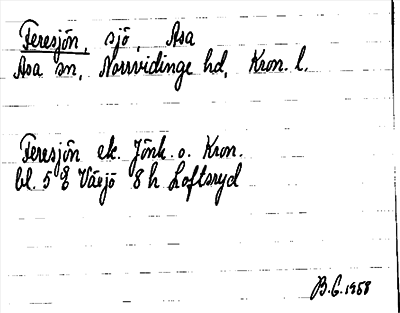 Feresjön, sjö, Asa
Asa sn, Norrvidinge hd, Kron. l.
Feresjön ek. Jönk. o. Kron.
bl. 5 E Växjö 8 h Loftsryd
B.G. 1958